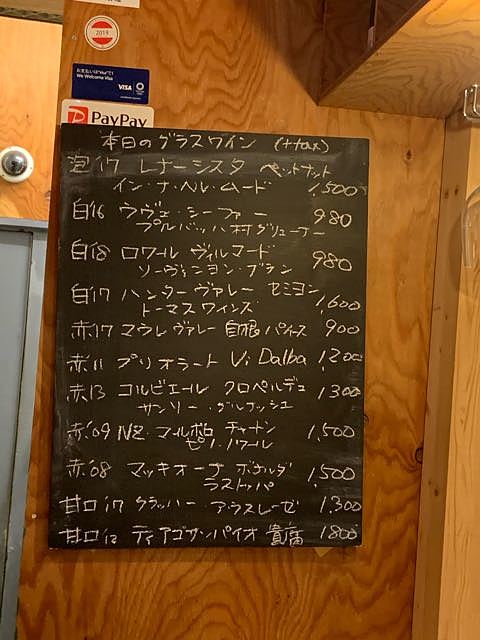 2019
お支払いはVisaで!
We Welcome Visa
VISA
PayPay
本日のグラスワイン (+tax)
泡17 レナーシスタ ペットナット
イン・ナ・ヘル・ムード 1,500
白16 ウヴェ・シーファー 980
プルバッハ村グリューナー
白18 ロワール ヴィルマード 980
ソーヴィニヨン・ブラン
白17 ハンターヴァレー セミヨン
トーマスワインズ 1,600
赤17 マウレヴァレー 自根パイス 900
赤11 プリオラート Vi Dalba 1,200
赤13 コルビエール クロペルデュ 1,300
サンソー・グルナッシュ
赤'09 NZ・マールボロ チャートン 1,500
ピノ・ノワール
赤'08 マッキオーナ ボナルダ 1,500
ラストッパ
甘口17 クラッハー・アウスレーゼ 1,300
甘口12 ディアゴサンパイオ 貴腐 1,800